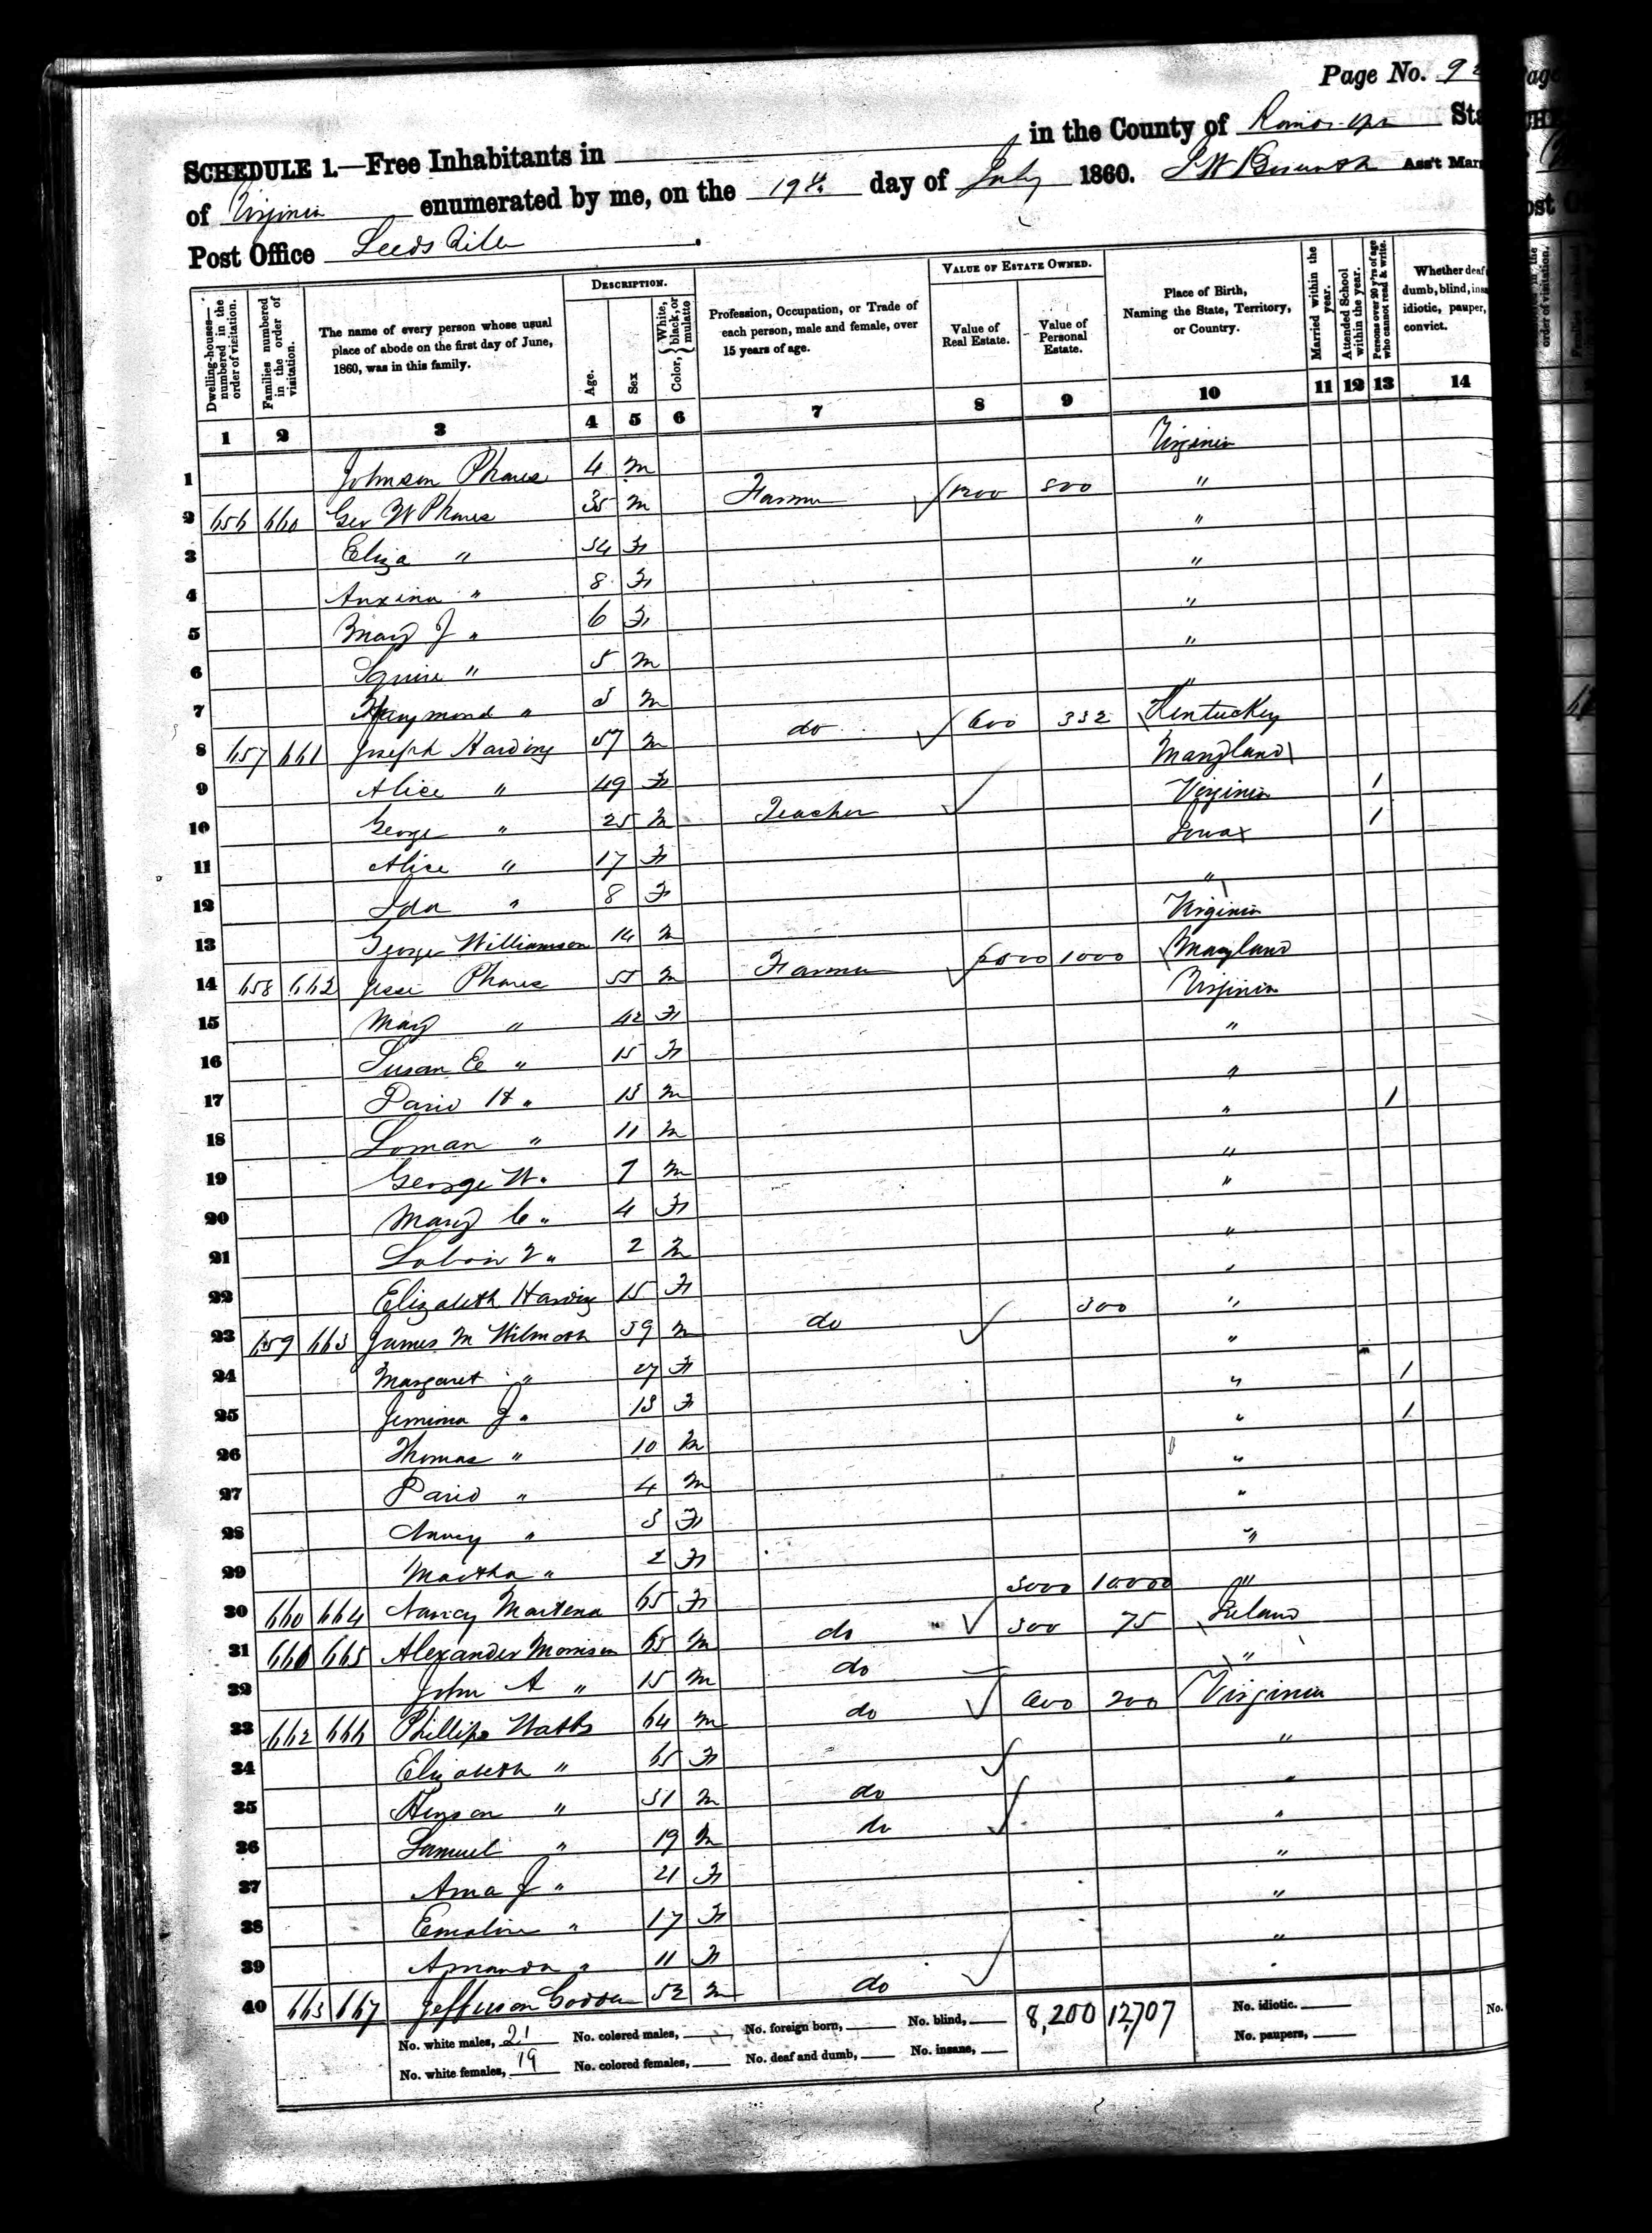 Page No. 9
SCHEDULE 1.—Free Inhabitants in in the County of Sta
of Virginia enumerated by me, on the 19th day of July 1860. Ass't Mars
Post Office
Dwelling-houses— numbered in the order of visitation.
Families numbered in the order of visitation.
The name of every person whose usual place of abode on the first day of June, 1860, was in this family.
DESCRIPTION.
Age.
Sex
Color, White, black, or mulatto
Profession, Occupation, or Trade of each person, male and female, over 15 years of age.
VALUE OF ESTATE OWNED.
Value of Real Estate.
Value of Personal Estate.
Place of Birth, Naming the State, Territory, or Country.
Married within the year.
Attended School within the year.
Persons over 20 y'rs of age who cannot read & write.
Whether deaf dumb, blind, insa idiotic, pauper, convict.
1 2 3 4 5 6 7 8 9 10 11 12 13 14
1 Johnson Phares 4 m Virginia
2 656 660 Geo W Phares 35 m Farmer 800 "
3 Eliza " 34 F "
4 " 8 F "
5 Mary J " 6 F "
6 Squire " 5 m "
7 " m "
8 657 661 Joseph Harding 57 m do 600 332 Kentucky
9 Alice " 49 F Maryland
10 George " 25 m Teacher Virginia 1
11 Alice " 17 F Iowa 1
12 Ida " 8 F "
13 George Williamson 14 m Virginia
14 658 662 Jesse Phares 55 m Farmer 1000 Maryland
15 Mary " 42 F Virginia
16 Susan E " 15 F "
17 H " 13 m "
18 Loman " 11 m " 1
19 George W " 7 m "
20 Mary C " 4 F "
21 " 2 m "
22 Elizabeth Harding 15 F "
23 659 663 James M Wilmoth 39 m do 300 "
24 Margaret " 27 F "
25 Jemima J " 13 F " 1
26 Thomas " 10 m " 1
27 " 4 m "
28 " 3 F "
29 Martha " 2 F "
30 660 664 Nancy Martena 65 F 3000 10000 "
31 661 665 Alexander Morrison 65 m do 300 75 Ireland
32 John A " 15 m do "
33 662 666 Phillip Watts 64 m do 200 Virginia
34 Elizabeth " 65 F "
35 " 31 m do "
36 Samuel " 19 m do "
37 J " 21 F "
38 Emaline " 17 F "
39 Amanda " 11 F "
40 663 667 Jefferson 52 m do "
No. white males, 21 No. colored males, No. foreign born, No. blind, 8,200 12,707 No. idiotic. No.
No. white females, 19 No. colored females, No. deaf and dumb, No. insane, No. paupers,